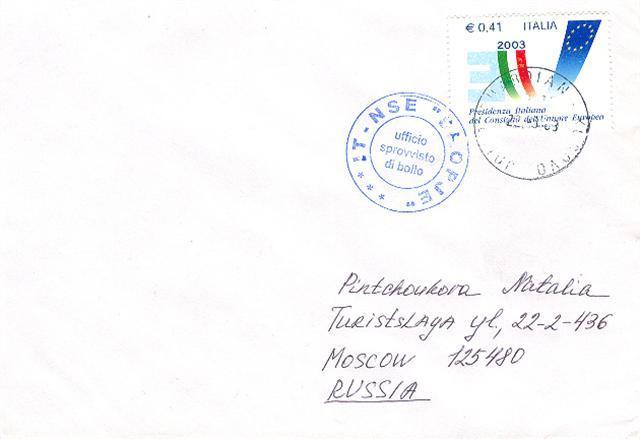 € 0.41 ITALIA
2003
Presidenza Italiana
del Consiglio dell'Unione Europea
IT-NSE "SLOPJE" ****
ufficio
sprovvisto
di bollo
Pintchoukova Natalia
TURISTSLAYA yl, 22-2-436
MOSCOW 125480
RUSSIA